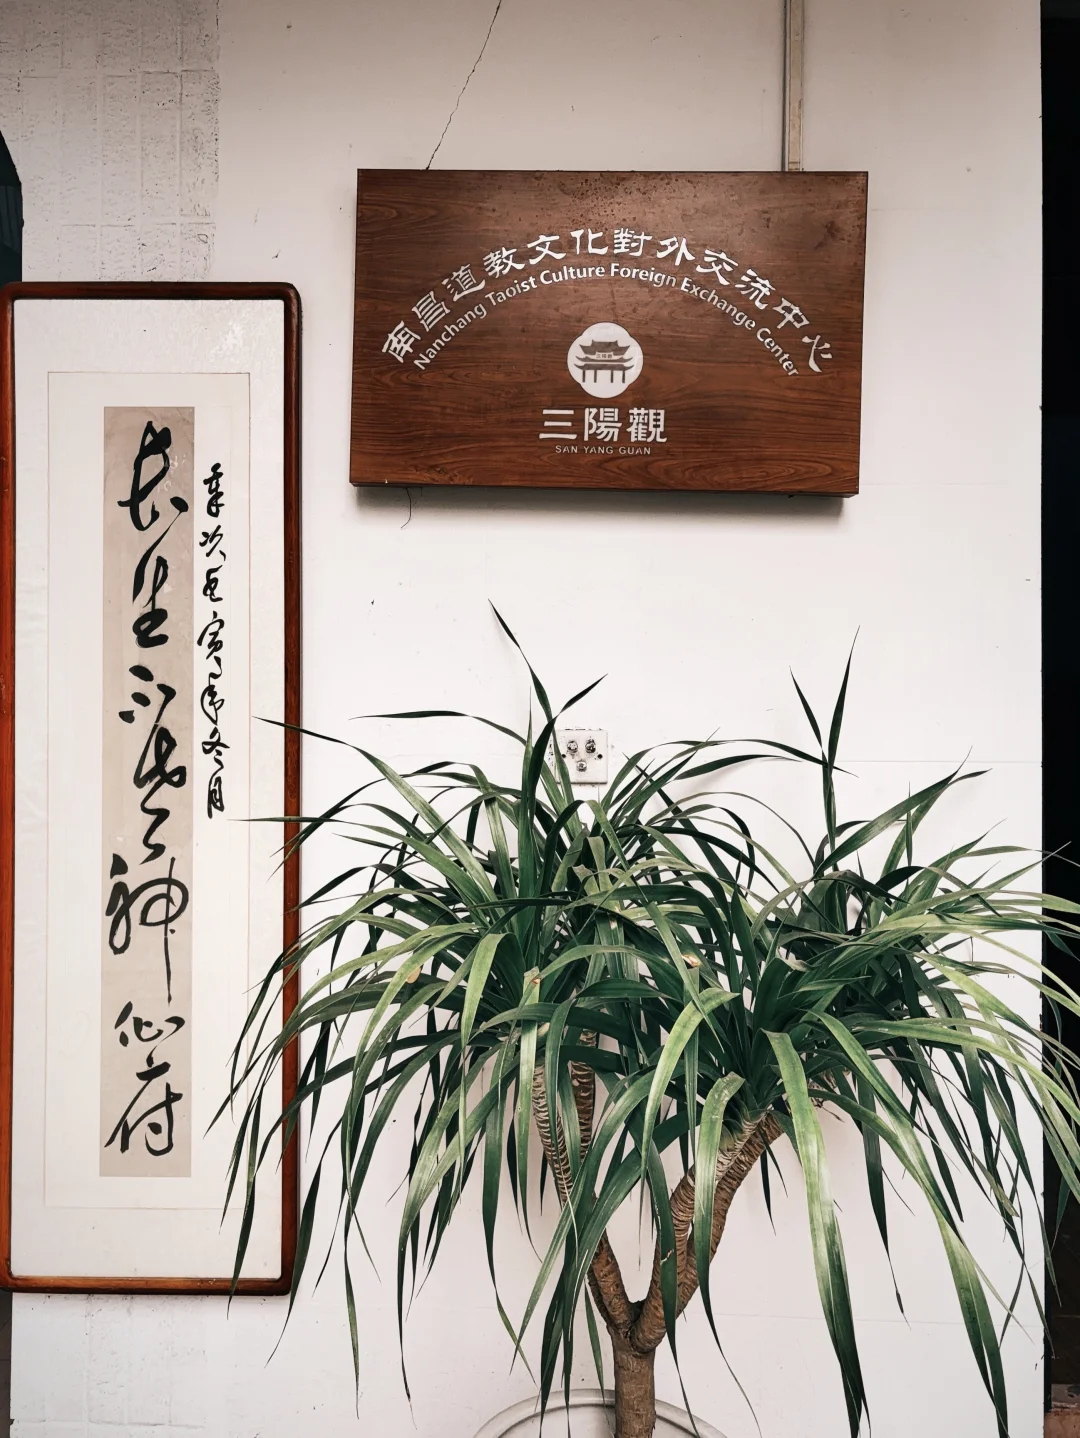 南昌道教文化對外交流中心
Nanchang Taoist Culture Foreign Exchange Center
三陽觀
SAN YANG GUAN
長生不老神仙府
年冬月